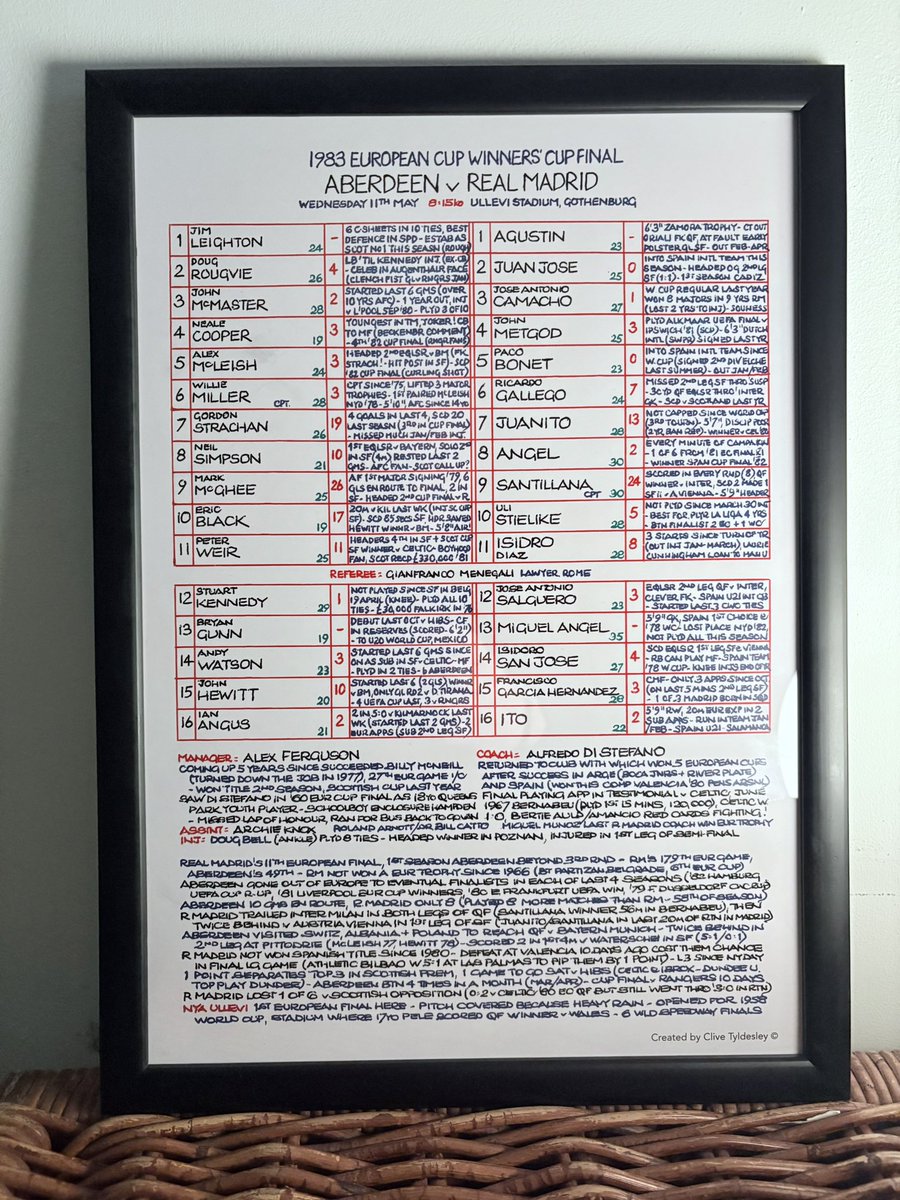 1983 EUROPEAN CUP WINNERS' CUP FINAL
ABERDEEN v REAL MADRID
WEDNESDAY 11TH MAY 8:15ko ULLEVI STADIUM, GOTHENBURG
1 JIM LEIGHTON 24 -
6 C·SHEETS IN 10 TIES, BEST
DEFENCE IN SPD - ESTAB AS
SCOT NO1 THIS SEASN (ROUGH)
1 AGUSTIN 23 -
6'3" ZAMORA TROPHY - CT OUT
ORIALI FK QF, AT FAULT EARLY
POLSTER GL SF - OUT FEB-APR
2 DOUG ROUGVIE 26 4
LB 'TIL KENNEDY INJ. (EX-CB)
- CELEB IN AUGENTHALER FACE
(CLENCH FIST GL v RNGRS JAN)
2 JUAN JOSE 25 0
INTO SPAIN INTL TEAM THIS
SEASON - HEADED OG 2ND LG
SF (1:1) - 1ST SEASON CADIZ
3 JOHN McMASTER 28 2
STARTED LAST 6 GMS (OVER
10 YRS AFC) - 1 YEAR OUT, INJ
v L'POOL SEP '80 - PLYD 8 OF 10
3 JOSE ANTONIO CAMACHO 27 1
W CUP REGULAR LAST YEAR
WON 8 MAJORS IN 9 YRS RM
(LAST 2 YRS TO INJ) - SOUNESS
4 NEALE COOPER 19 3
YOUNGEST IN TM, JOKER! CB
TO MF (BECKENBR COMMENT)
- 4TH '82 CUP FINAL (RNGR FANS)
4 JOHN METGOD 25 3
PLYD ALKMAAR UEFA FINAL v
IPSWICH '81 (SCD) - 6'3" DUTCH
INTL (SWPR) SIGNED LAST YR
5 ALEX McLEISH 24 3
HEADED 2ND EQLSR v BM (FK
STRACH! - HIT POST IN SF) - SCD
'82 CUP FINAL (CURLING SHOT)
5 PACO BONET 23 0
INTO SPAIN INTL TEAM SINCE
W.CUP (SIGNED 2ND DIV ELCHE
LAST SUMMER) - OUT JAN/FEB
6 WILLIE MILLER CPT. 28 3
CPT SINCE '75, LIFTED 3 MAJOR
TROPHIES - 1ST PAIRED McLEISH
NYD '78 - 5'10", AFC SINCE 14YO
6 RICARDO GALLEGO 24 7
MISSED 2ND LEG SF THRO' SUSP
- SCYD QF EQLSR THRO' INTER
GK - SCD v SCOTLAND LAST YR
7 GORDON STRACHAN 26 19
4 GOALS IN LAST 4, SCD 20
LAST SEASN (3RD IN CUP FINAL)
- MISSED MUCH JAN/FEB INT.
7 JUANITO 28 13
NOT CAPPED SINCE WORLD CUP
(3RD TOURN) - 5'7", DISCIP FOR
(2YR BAN REF) - WINNER v CEL '80
8 NEIL SIMPSON 21 10
1ST EQLSR v BAYERN, SOLO 2ND
IN SF (4m) RESTED LAST 2
GMS - AFC FAN - SCOT CALL UP?
8 ANGEL 30 2
EVERY MINUTE OF CAMPAIGN
- 1 OF 6 FROM '81 EC FINAL XI
- WINNER SPAN CUP FINAL '82
9 MARK McGHEE 25 26
AF 1ST MAJOR SIGNING '79, 6
GLS EN ROUTE TO FINAL, 2 IN
SF - HEADED 2ND CUP FINAL v R.
9 SANTILLANA CPT 30 24
SCORED IN EVERY RND (8) QF
WINNER v INTER, SCD 2 MADE 1
SF ii v A VIENNA - 5'9" HEADER
10 ERIC BLACK 19 17
20M v KIL LAST WK (INT SC CUP
SF) - SCD 85 SECS SF, HDR SAVED
HEWITT WINNR v BM - 5'8" AIR!
10 ULI STIELIKE 28 5
NOT PLYD SINCE MARCH 30 INT
- BEST FOR. PLYR LA LIGA 4 YRS
- BTN FINALIST 2 EC + 1 WC
11 PETER WEIR 25 11
HEADERS 4TH IN SF + SCOT CUP
SF WINNER v CELTIC - BOYHOOD
FAN, SCOT RECD £330,000 '81
11 ISIDRO DIAZ 28 8
3 STARTS SINCE TURN OF YR
(OUT INJ JAN-MARCH) LAURIE
CUNNINGHAM LOAN TO MAN U
REFEREE: GIANFRANCO MENEGALI LAWYER ROME
12 STUART KENNEDY 29 1
NOT PLAYED SINCE SF IN BELG
19 APRIL (KNEE) - PLYD ALL 10
TIES - £30,000 FALKIRK IN 76
12 JOSE ANTONIO SALGUERO 23 3
EQLSR 2ND LEG QF v INTER,
CLEVER FK - SPAIN U21 INT CB
- STARTED LAST 3 CWC TIES
13 BRYAN GUNN 19 -
DEBUT LAST OCT v HIBS - CF
IN RESERVES (SCORED - 6'2")
- TO U20 WORLD CUP, MEXICO
13 MIGUEL ANGEL 35 -
5'9" GK, SPAIN 1ST CHOICE @
'78 WC - LOST PLACE NYD '82,
NOT PLYD ALL THIS SEASON
14 ANDY WATSON 23 3
STARTED LAST 6 GMS SINCE
ON AS SUB IN SF v CELTIC - MF
- PLYD IN 2 TIES - b ABERDEEN
14 ISIDORO SAN JOSE 27 4
SCD EQLSR 1ST LEG SF v VIENNA
- RB CAN PLAY MF - SPAIN TEAM
'78 W CUP - KNEE INJ END OF R
15 JOHN HEWITT 20 10
STARTED LAST 6 (2 GLS) WINNR
v BM, ONLY GL RD2 v D TIRANA
- 4 UEFA CUP LAST, 3 v RNGRS
15 FRANCISCO GARCIA HERNANDEZ 28 3
CMF - ONLY 3 APPS SINCE OCT
(ON LAST 5 MINS 2ND LEG SF)
- 1 OF 3 MADRID BORN IN SQD
16 IAN ANGUS 21 2
2 IN 5:0 v KILMARNOCK LAST
WK (STARTED LAST 2 GMS) - 2
EUR APPS (SUB 2ND LEG SF)
16 ITO 22 2
5'9" RW, 20M EUR EXP IN 2
SUB APPS - RUN IN TEAM JAN
/FEB - SPAIN U21 - SALAMANCA
MANAGER: ALEX FERGUSON
COMING UP 5 YEARS SINCE SUCCEEDED BILLY McNEILL
(TURNED DOWN THE JOB IN 1977), 27TH EUR GAME I/C
- WON TITLE 2ND SEASON, SCOTTISH CUP LAST YEAR
SAW DI STEFANO IN '60 EUR CUP FINAL AS 18YO QUEENS
PARK YOUTH PLAYER - SCHOOLBOY ENCLOSURE HAMPDEN
- MISSED LAP OF HONOUR, RAN FOR BUS BACK TO GOVAN
COACH: ALFREDO DI STEFANO
RETURNED TO CLUB WITH WHICH WON 5 EUROPEAN CUPS
AFTER SUCCESS IN ARGE (BOCA JNRS + RIVER PLATE)
AND SPAIN (WON THIS COMP VALENCIA '80 PENS ARSNL)
FINAL PLAYING APP IN TESTIMONIAL v CELTIC, JUNE
1967 BERNABEU (PLYD 1ST 15 MINS, 120,000), CELTIC W
1:0, BERTIE AULD/AMANCIO RED CARDS FIGHTING!
ASSINT: ARCHIE KNOX ROLAND ARNOTT/DR BILL CATTO MIGUEL MUNOZ LAST R MADRID COACH WIN EUR TROPHY
INJ: DOUG BELL (ANKLE) PLYD 8 TIES - HEADED WINNER IN POZNAN, INJURED IN 1ST LEG OF SEMI-FINAL
REAL MADRID'S 11TH EUROPEAN FINAL, 1ST SEASON ABERDEEN BEYOND 3RD RND - RM'S 179TH EUR GAME,
ABERDEEN'S 49TH - RM NOT WON A EUR TROPHY SINCE 1966 (BT PARTIZAN BELGRADE, 6TH EUR CUP)
ABERDEEN GONE OUT OF EUROPE TO EVENTUAL FINALISTS IN EACH OF LAST 4 SEASONS ('82 HAMBURG
UEFA CUP R-UP, '81 LIVERPOOL EUR CUP WINNERS, '80 E. FRANKFURT UEFA WIN, '79 F. DUSSELDORF CWC RU)
ABERDEEN 10 GMS EN ROUTE, R MADRID ONLY 8 (PLAYED 8 MORE MATCHES THAN RM - 58TH OF SEASON)
R MADRID TRAILED INTER MILAN IN BOTH LEGS OF QF (SANTILLANA WINNER 56m IN BERNABEU), THEN
TWICE BEHIND v AUSTRIA VIENNA IN 1ST LEG OF SF (JUANITO/SANTILLANA IN LAST 20M OF RTN IN MADRID)
ABERDEEN VISITED SWITZ, ALBANIA + POLAND TO REACH QF v BAYERN MUNICH - TWICE BEHIND IN
2ND LEG AT PITTODRIE (McLEISH 77, HEWITT 78) - SCORED 2 IN 1ST 4M v WATERSCHEI IN SF (5:1/0:1)
R MADRID NOT WON SPANISH TITLE SINCE 1980 - DEFEAT AT VALENCIA 10 DAYS AGO COST THEM CHANCE
IN FINAL LG GAME (ATHLETIC BILBAO W 5:1 AT LAS PALMAS TO PIP THEM BY 1 POINT) - L3 SINCE NY DAY
1 POINT SEPARATES TOP 3 IN SCOTTISH PREM, 1 GAME TO GO SAT v HIBS (CELTIC @ IBROX - DUNDEE U.
TOP PLAY DUNDEE) - ABERDEEN BTN 4 TIMES IN A MONTH (MAR/APR) - CUP FINAL v RANGERS 10 DAYS,
R MADRID LOST 1 OF 6 v SCOTTISH OPPOSITION (0:2 v CELTIC '80 EC QF BUT STILL WENT THRO' 3:0 IN RTN)
NYA ULLEVI 1ST EUROPEAN FINAL HERE - PITCH COVERED BECAUSE HEAVY RAIN - OPENED FOR 1958
WORLD CUP, STADIUM WHERE 17YO PELE SCORED QF WINNER v WALES - 6 WLD SPEEDWAY FINALS
Created by Clive Tyldesley ©